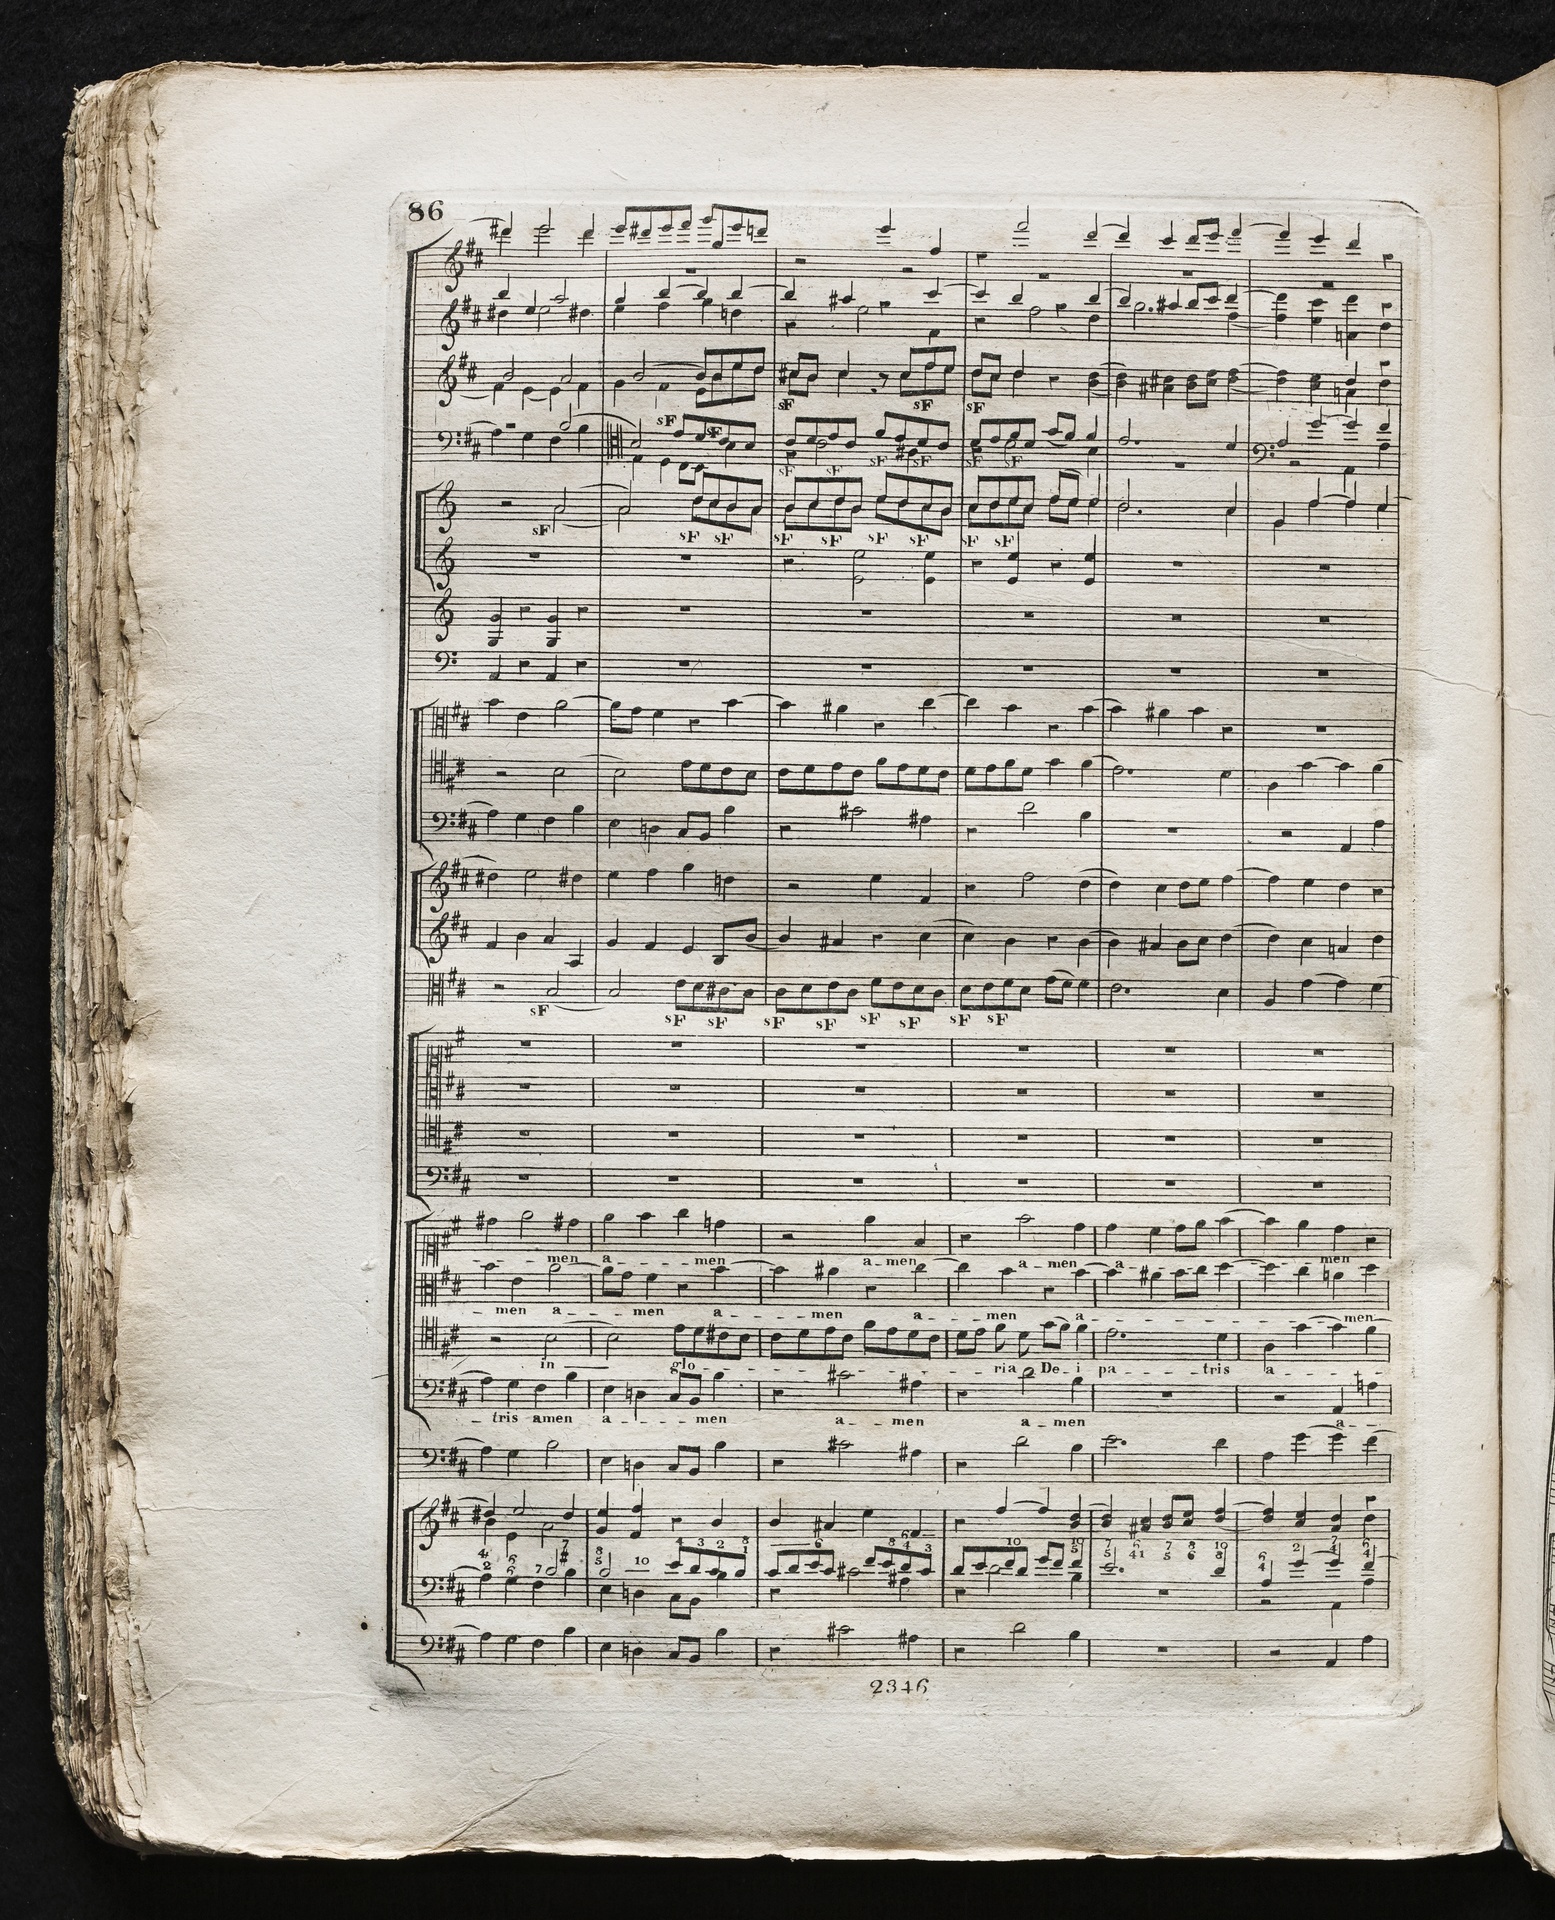 86
sF sF sF sF sF
sF sF sF sF sF sF
sF sF sF sF sF sF sF sF sF
sF sF sF sF sF sF sF sF sF
men a - - - men a - men a - men a - - - men
men a - - - men a - - - men a - - - men a - - - men
in glo - - - ria De - i pa - - - tris a
tris amen a - - - men a - - men a - men a -
2346